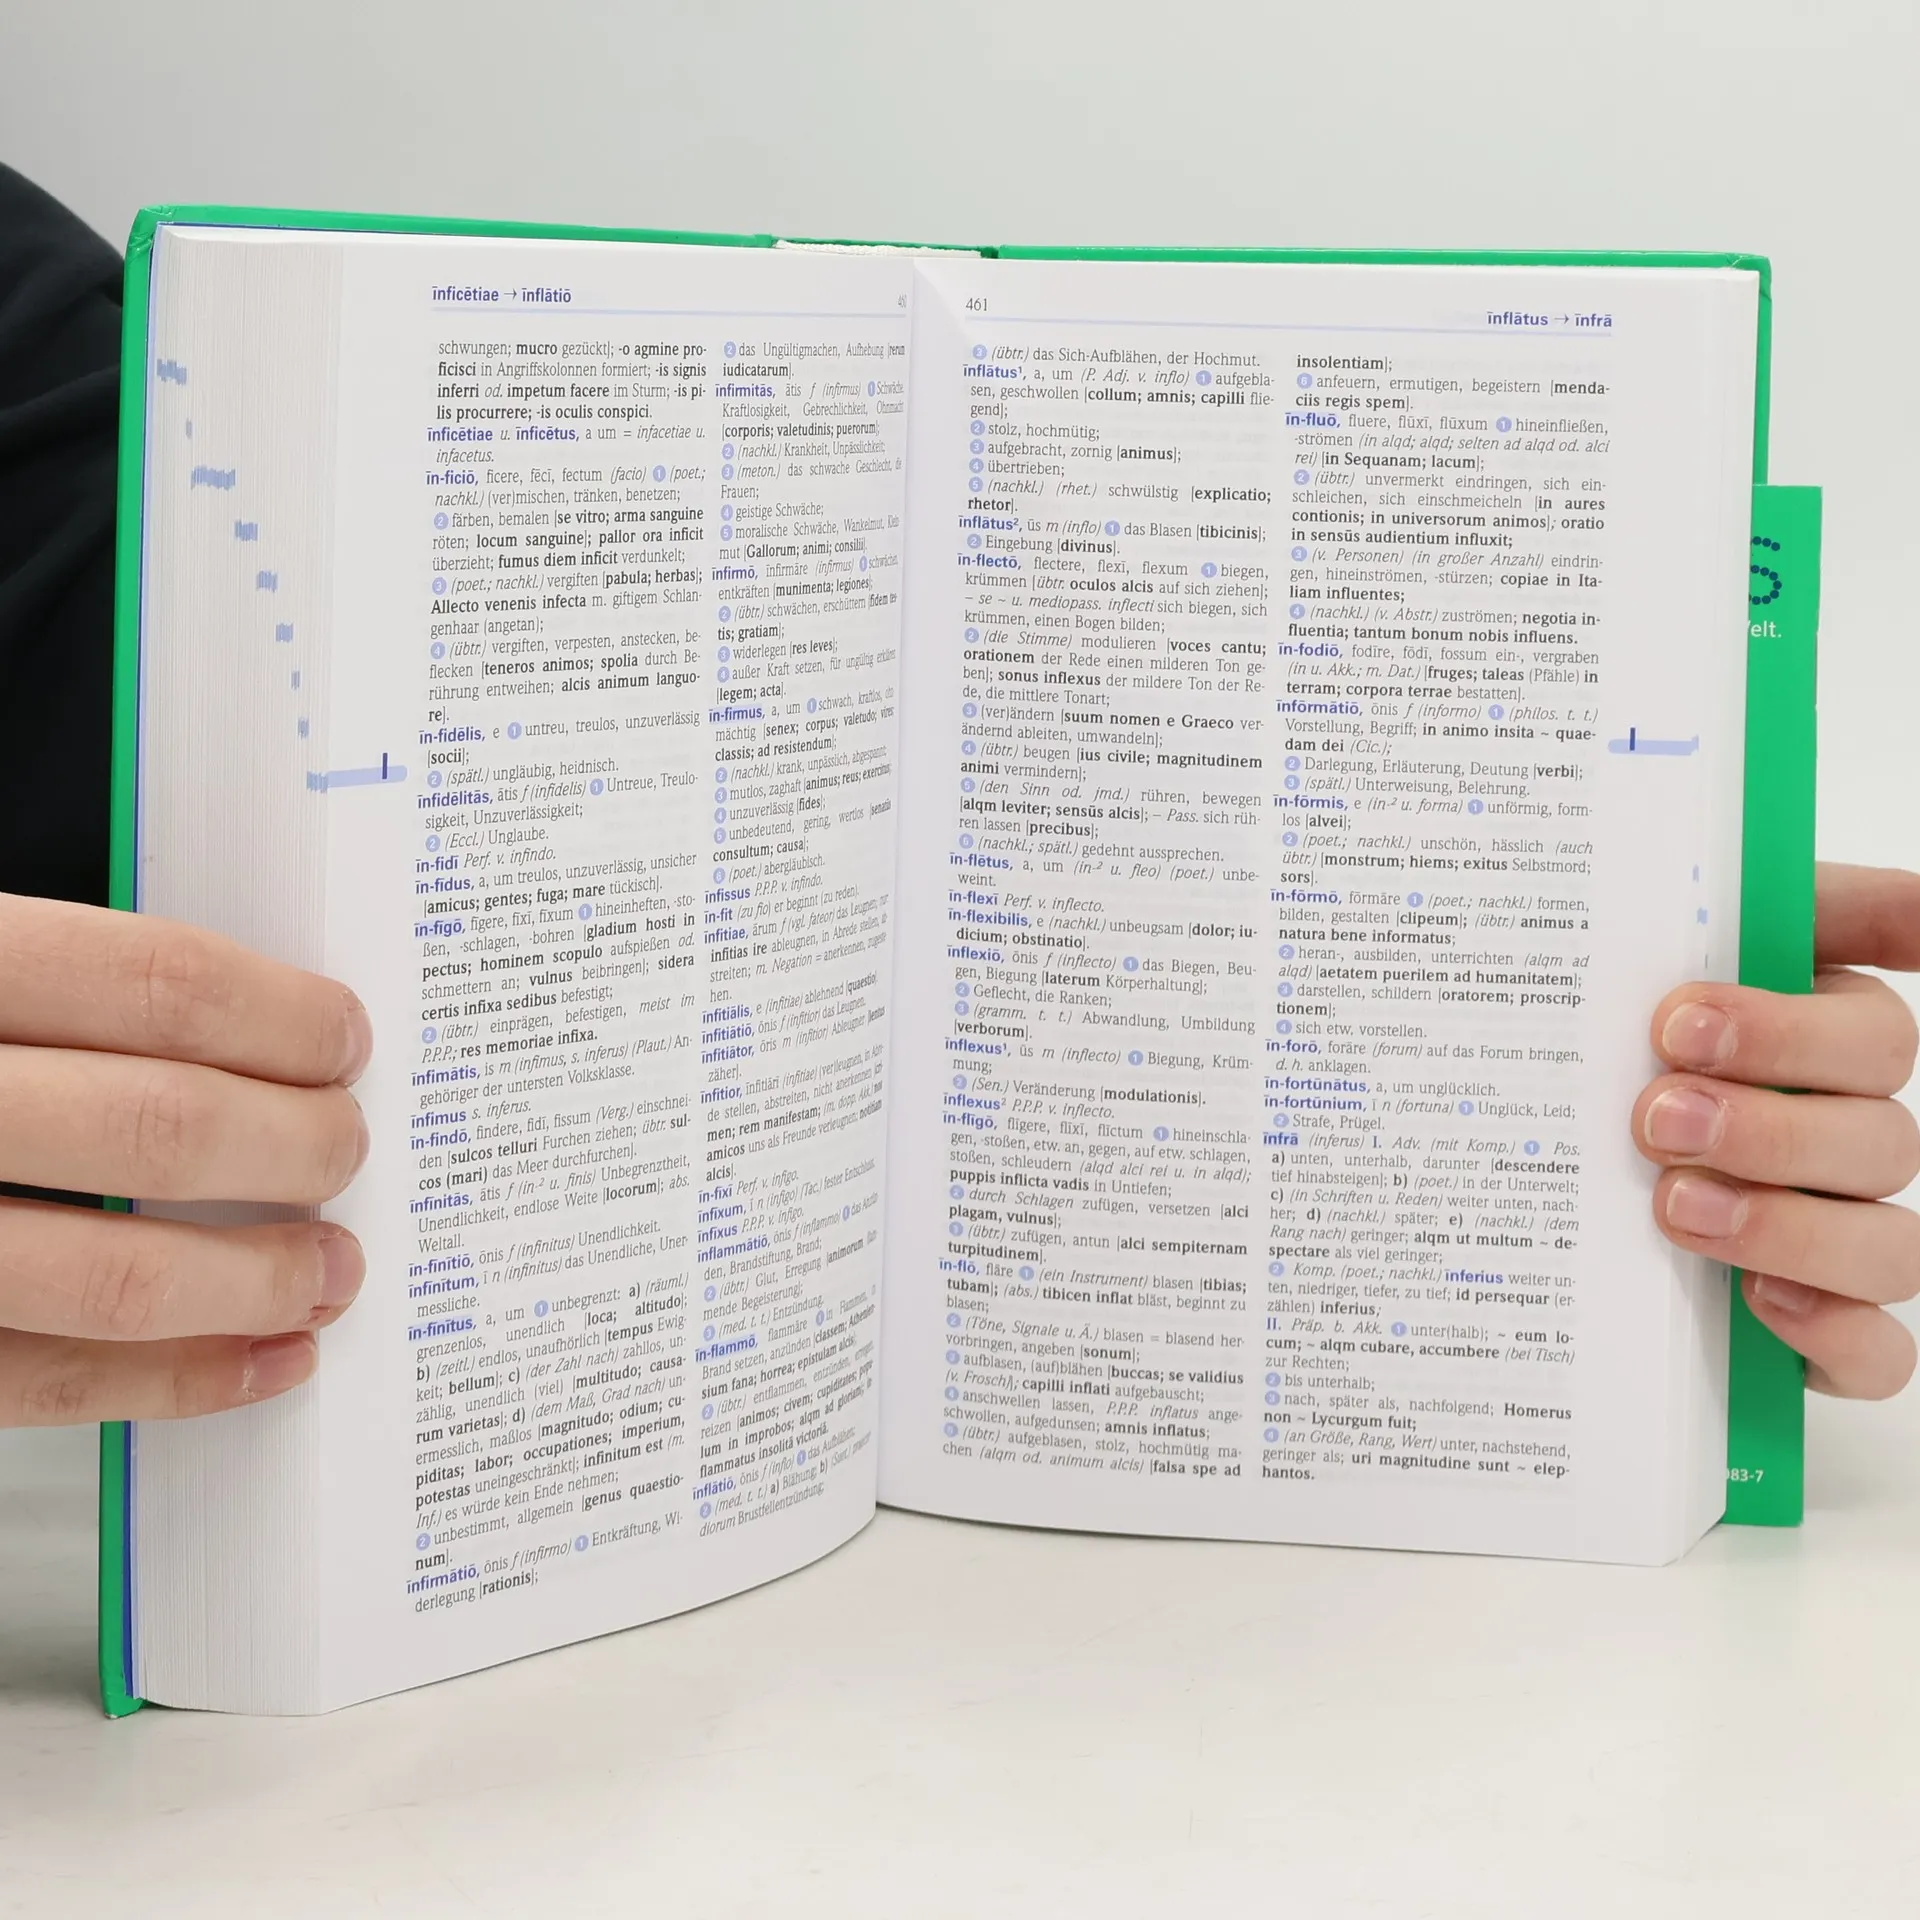 īnficētiae → īnflātiō
schwungen; mucro gezückt|; -o agmine pro-
ficisci in Angriffskolonnen formiert; -is signis
inferri od. impetum facere im Sturm; -is pi-
lis procurrere; -is oculis conspici.
īnficētiae u. īnficētus, a um = infacetiae u.
infacetus.
īn-ficiō, ficere, fēcī, fectum (facio) 1 (poet.;
nachkl.) (ver)mischen, tränken, benetzen;
2 färben, bemalen |se vitro; arma sanguine
röten; locum sanguine|; pallor ora inficit
überzieht; fumus diem inficit verdunkelt;
3 (poet.; nachkl.) vergiften |pabula; herbas|;
Allecto venenis infecta m. giftigem Schlan-
genhaar (angetan);
4 (übtr.) vergiften, verpesten, anstecken, be-
flecken |teneros animos; spolia durch Be-
rührung entweihen; alcis animum languo-
re|.
īn-fidēlis, e 1 untreu, treulos, unzuverlässig
|socii|;
2 (spätl.) ungläubig, heidnisch.
īnfidēlitās, ātis f (infidelis) 1 Untreue, Treulo-
sigkeit, Unzuverlässigkeit;
2 (Eccl.) Unglaube.
īn-fidī Perf. v. infindo.
īn-fīdus, a, um treulos, unzuverlässig, unsicher
|amicus; gentes; fuga; mare tückisch|.
īn-fīgō, fīgere, fīxī, fīxum 1 hineinheften, -sto-
ßen, -schlagen, -bohren |gladium hosti in
pectus; hominem scopulo aufspießen od.
schmettern an; vulnus beibringen|; sidera
certis infixa sedibus befestigt;
2 (übtr.) einprägen, befestigen, meist im
P.P.P.; res memoriae infixa.
īnfimātis, is m (infimus, s. inferus) (Plaut.) An-
gehöriger der untersten Volksklasse.
īnfimus s. inferus.
īn-findō, findere, fidī, fissum (Verg.) einschnei-
den |sulcos telluri Furchen ziehen; übtr. sul-
cos (mari) das Meer durchfurchen|.
īnfīnitās, ātis f (in-² u. finis) Unbegrenztheit,
Unendlichkeit, endlose Weite |locorum|; abs.
Weltall.
īn-fīnītiō, ōnis f (infinitus) Unendlichkeit.
īnfīnītum, ī n (infinitus) das Unendliche, Uner-
messliche.
īn-fīnītus, a, um 1 unbegrenzt: a) (räuml.)
grenzenlos, unendlich |loca; altitudo|;
b) (zeitl.) endlos, unaufhörlich |tempus Ewig-
keit; bellum|; c) (der Zahl nach) zahllos, un-
zählig, unendlich (viel) |multitudo; causa-
rum varietas|; d) (dem Maß, Grad nach) un-
ermesslich, maßlos |magnitudo; odium; cu-
piditas; labor; occupationes; imperium,
potestas uneingeschränkt|; infinitum est (m.
Inf.) es würde kein Ende nehmen;
2 unbestimmt, allgemein |genus quaestio-
num|.
īnfirmātiō, ōnis f (infirmo) 1 Entkräftung, Wi-
derlegung |rationis|;
2 das Ungültigmachen, Aufhebung |rerum
iudicatarum|.
īnfirmitās, ātis f (infirmus) 1 Schwäche,
Kraftlosigkeit, Gebrechlichkeit, Ohnmacht
|corporis; valetudinis; puerorum|;
2 (nachkl.) Krankheit, Unpässlichkeit;
3 (meton.) das schwache Geschlecht, die
Frauen;
4 geistige Schwäche;
5 moralische Schwäche, Wankelmut, Klein-
mut |Gallorum; animi; consilii|.
īnfirmō, īnfirmāre (infirmus) 1 schwächen,
entkräften |munimenta; legiones|;
2 (übtr.) schwächen, erschüttern |fidem tes-
tis; gratiam|;
3 widerlegen |res leves|;
4 außer Kraft setzen, für ungültig erklären
|legem; acta|.
īn-firmus, a, um 1 schwach, kraftlos, ohn-
mächtig |senex; corpus; valetudo; vires;
classis; ad resistendum|;
2 (nachkl.) krank, unpässlich, abgespannt;
3 mutlos, zaghaft |animus; reus; exercitus|;
4 unzuverlässig |fides|;
5 unbedeutend, gering, wertlos |senatus
consultum; causa|;
6 (poet.) abergläubisch.
īnfissus P.P.P. v. infindo.
īn-fit (zu fio) er beginnt (zu reden).
īnfitiae, ārum f (vgl. fateor) das Leugnen; nur
infitias ire ableugnen, in Abrede stellen, ab-
streiten; m. Negation = anerkennen, zugeste-
hen.
īnfitiālis, e (infitiae) ablehnend |quaestio|.
īnfitiātiō, ōnis f (infitior) das Leugnen.
īnfitiātor, ōris m (infitior) Ableugner |lentus
zäher|.
īnfitior, īnfitiārī (infitiae) (ver)leugnen, in Abre-
de stellen, abstreiten, nicht anerkennen |cri-
men; rem manifestam; (m. dopp. Akk.) nos
amicos uns als Freunde verleugnen; notitiam
alcis|.
īn-fīxī Perf. v. infigo.
īnfīxum, ī n (infigo) (Tac.) fester Entschluss.
īnfīxus P.P.P. v. infigo.
īnflammātiō, ōnis f (inflammo) 1 das Anzün-
den, Brandstiftung, Brand;
2 (übtr.) Glut, Erregung |animorum flam-
mende Begeisterung|;
3 (med. t. t.) Entzündung.
īn-flammō, flammāre 1 in Flammen, in
Brand setzen, anzünden |classem; Athenien-
sium fana; horrea; epistulam alcis|;
2 (übtr.) entflammen, entzünden, erregen,
reizen |animos; civem; cupiditates; popu-
lum in improbos; alqm ad gloriam|; in-
flammatus insolita victoria.
īnflātiō, ōnis f (inflo) 1 das Aufblähen;
2 (med. t. t.) a) Blähung; b) (Suet.) praecor-
diorum Brustfellentzündung;
461
īnflātus → īnfrā
3 (übtr.) das Sich-Aufblähen, der Hochmut.
īnflātus¹, a, um (P. Adj. v. inflo) 1 aufgebla-
sen, geschwollen |collum; amnis; capilli flie-
gend|;
2 stolz, hochmütig;
3 aufgebracht, zornig |animus|;
4 übertrieben;
5 (nachkl.) (rhet.) schwülstig |explicatio;
rhetor|.
īnflātus², ūs m (inflo) 1 das Blasen |tibicinis|;
2 Eingebung |divinus|.
īn-flectō, flectere, flexī, flexum 1 biegen,
krümmen |übtr. oculos alcis auf sich ziehen|;
– se ~ u. mediopass. inflecti sich biegen, sich
krümmen, einen Bogen bilden;
2 (die Stimme) modulieren |voces cantu;
orationem der Rede einen milderen Ton ge-
ben|; sonus inflexus der mildere Ton der Re-
de, die mittlere Tonart;
3 (ver)ändern |suum nomen e Graeco ver-
ändernd ableiten, umwandeln|;
4 (übtr.) beugen |ius civile; magnitudinem
animi vermindern|;
5 (den Sinn od. jmd.) rühren, bewegen
|alqm leviter; sensūs alcis|; – Pass. sich rüh-
ren lassen |precibus|;
6 (nachkl.; spätl.) gedehnt aussprechen.
īn-flētus, a, um (in-² u. fleo) (poet.) unbe-
weint.
īn-flexī Perf. v. inflecto.
īn-flexibilis, e (nachkl.) unbeugsam |dolor; iu-
dicium; obstinatio|.
īnflexiō, ōnis f (inflecto) 1 das Biegen, Beu-
gen, Biegung |laterum Körperhaltung|;
2 Geflecht, die Ranken;
3 (gramm. t. t.) Abwandlung, Umbildung
|verborum|.
īnflexus¹, ūs m (inflecto) 1 Biegung, Krüm-
mung;
2 (Sen.) Veränderung |modulationis|.
īnflexus² P.P.P. v. inflecto.
īn-flīgō, flīgere, flīxī, flīctum 1 hineinschla-
gen, -stoßen, etw. an, gegen, auf etw. schlagen,
stoßen, schleudern (alqd alci rei u. in alqd);
puppis inflicta vadis in Untiefen;
2 durch Schlagen zufügen, versetzen |alci
plagam, vulnus|;
3 (übtr.) zufügen, antun |alci sempiternam
turpitudinem|.
īn-flō, flāre 1 (ein Instrument) blasen |tibias;
tubam|; (abs.) tibicen inflat bläst, beginnt zu
blasen;
2 (Töne, Signale u. Ä.) blasen = blasend her-
vorbringen, angeben |sonum|;
3 aufblasen, (auf)blähen |buccas; se validius
(v. Frosch)|; capilli inflati aufgebauscht;
4 anschwellen lassen, P.P.P. inflatus ange-
schwollen, aufgedunsen; amnis inflatus;
5 (übtr.) aufgeblasen, stolz, hochmütig ma-
chen (alqm od. animum alcis) |falsa spe ad
insolentiam|;
6 anfeuern, ermutigen, begeistern |menda-
ciis regis spem|.
īn-fluō, fluere, flūxī, flūxum 1 hineinfließen,
-strömen (in alqd; alqd; selten ad alqd od. alci
rei) |in Sequanam; lacum|;
2 (übtr.) unvermerkt eindringen, sich ein-
schleichen, sich einschmeicheln |in aures
contionis; in universorum animos|; oratio
in sensūs audientium influxit;
3 (v. Personen) (in großer Anzahl) eindrin-
gen, hineinströmen, -stürzen; copiae in Ita-
liam influentes;
4 (nachkl.) (v. Abstr.) zuströmen; negotia in-
fluentia; tantum bonum nobis influens.
īn-fodiō, fodīre, fōdī, fossum ein-, vergraben
(in u. Akk.; m. Dat.) |fruges; taleas (Pfähle) in
terram; corpora terrae bestatten|.
īnfōrmātiō, ōnis f (informo) 1 (philos. t. t.)
Vorstellung, Begriff; in animo insita ~ quae-
dam dei (Cic.);
2 Darlegung, Erläuterung, Deutung |verbi|;
3 (spätl.) Unterweisung, Belehrung.
īn-fōrmis, e (in-² u. forma) 1 unförmig, form-
los |alvei|;
2 (poet.; nachkl.) unschön, hässlich (auch
übtr.) |monstrum; hiems; exitus Selbstmord;
sors|.
īn-fōrmō, fōrmāre 1 (poet.; nachkl.) formen,
bilden, gestalten |clipeum|; (übtr.) animus a
natura bene informatus;
2 heran-, ausbilden, unterrichten (alqm ad
alqd) |aetatem puerilem ad humanitatem|;
3 darstellen, schildern |oratorem; proscrip-
tionem|;
4 sich etw. vorstellen.
īn-forō, forāre (forum) auf das Forum bringen,
d. h. anklagen.
īn-fortūnātus, a, um unglücklich.
īn-fortūnium, ī n (fortuna) 1 Unglück, Leid;
2 Strafe, Prügel.
īnfrā (inferus) I. Adv. (mit Komp.) 1 Pos.
a) unten, unterhalb, darunter |descendere
tief hinabsteigen|; b) (poet.) in der Unterwelt;
c) (in Schriften u. Reden) weiter unten, nach-
her; d) (nachkl.) später; e) (nachkl.) (dem
Rang nach) geringer; alqm ut multum ~ de-
spectare als viel geringer;
2 Komp. (poet.; nachkl.) īnferius weiter un-
ten, niedriger, tiefer, zu tief; id persequar (er-
zählen) inferius;
II. Präp. b. Akk. 1 unter(halb); ~ eum lo-
cum; ~ alqm cubare, accumbere (bei Tisch)
zur Rechten;
2 bis unterhalb;
3 nach, später als, nachfolgend; Homerus
non ~ Lycurgum fuit;
4 (an Größe, Rang, Wert) unter, nachstehend,
geringer als; uri magnitudine sunt ~ elep-
hantos.
I
I
S
elt.
083-7